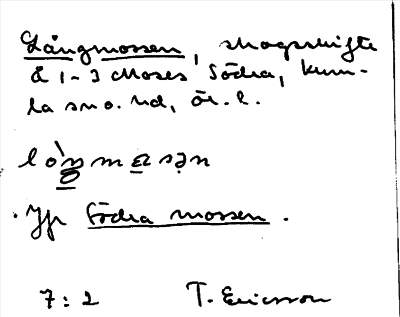 Långmossen, skogsskifte
å 1-3 Moses Södra, Kum-
la sn o. hd, ör. l.
lò̀ŋmɷsən
Jfr Södra mossen.
7:2 T. Ericsson